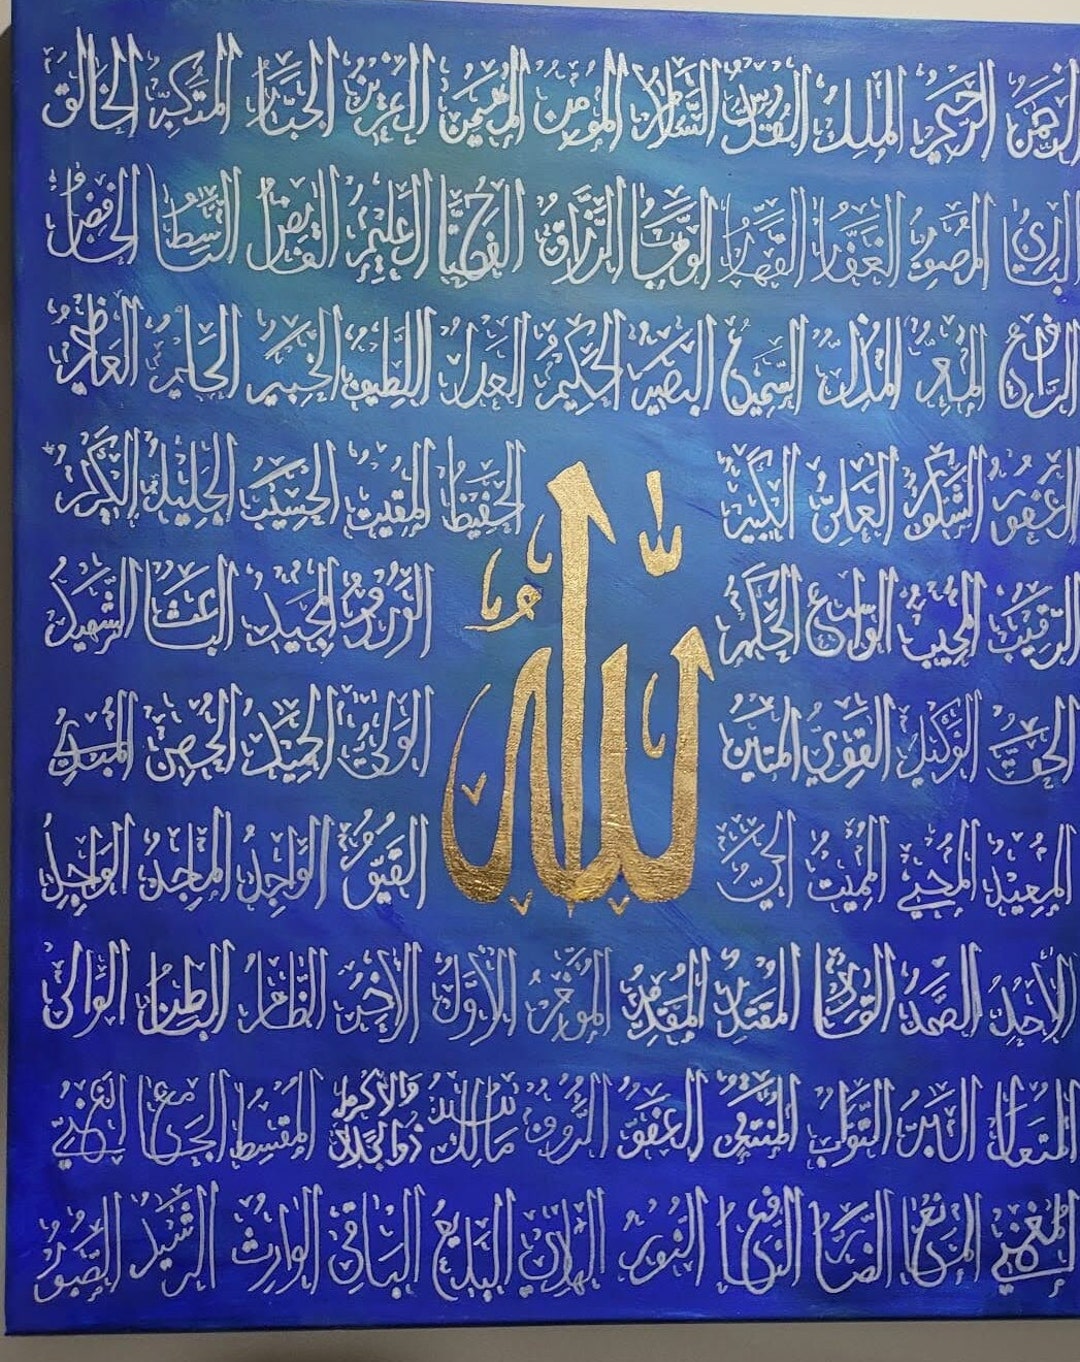 الرحمن الرحيم الملك القدوس السلام المؤمن المهيمن العزيز الجبار المتكبر الخالق
البارئ المصور الغفار القهار الوهاب الرزاق الفتاح العليم القابض الباسط الخافض
الرافع المعز المذل السميع البصير الحكيم العدل اللطيف الخبير الحليم العظيم
الغفور الشكور العلي الكبير الحفيظ المقيت الحسيب الجليل الكريم
الرقيب المجيب الواسع الحكيم الودود المجيد الباعث الشهيد
الله
الحق الوكيل القوي المتين الولي الحميد المحصي المبدئ
المعيد المحيي المميت الحي القيوم الواجد الماجد الواحد
الأحد الصمد القادر المقتدر المقدم المؤخر الأول الآخر الظاهر الباطن الوالي
المتعال البر التواب المنتقم العفو الرؤوف مالك الملك ذو الجلال والإكرام المقسط الجامع الغني
المغني المانع الضار النافع النور الهادي البديع الباقي الوارث الرشيد الصبور